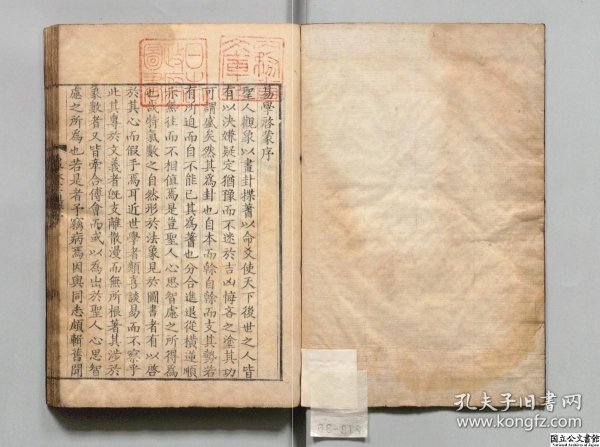 易學啓蒙序
聖人觀象以畫卦揲蓍以命爻使天下後世之人皆
有以決嫌疑定猶豫而不迷於吉凶悔吝之塗其功
可謂盛矣然其為卦也自本而榦自榦而支其勢若
有所迫而自不能已其為蓍也分合進退從橫逆順
亦無往而不相值焉是豈聖人心思智慮之所得為
也哉特氣數之自然形於法象見於圖書者有以啓
於其心而假手焉耳近世學者類喜談易而不察乎
此其專於文義者既支離散漫而無所根著其涉於
象數者又皆牽合傅會而或以為出於聖人心思智
慮之所為也若是者予竊病焉因與同志頗輯舊聞
孔夫子旧书网
www.kongfz.com
国立公文書館
National Archives of Japan